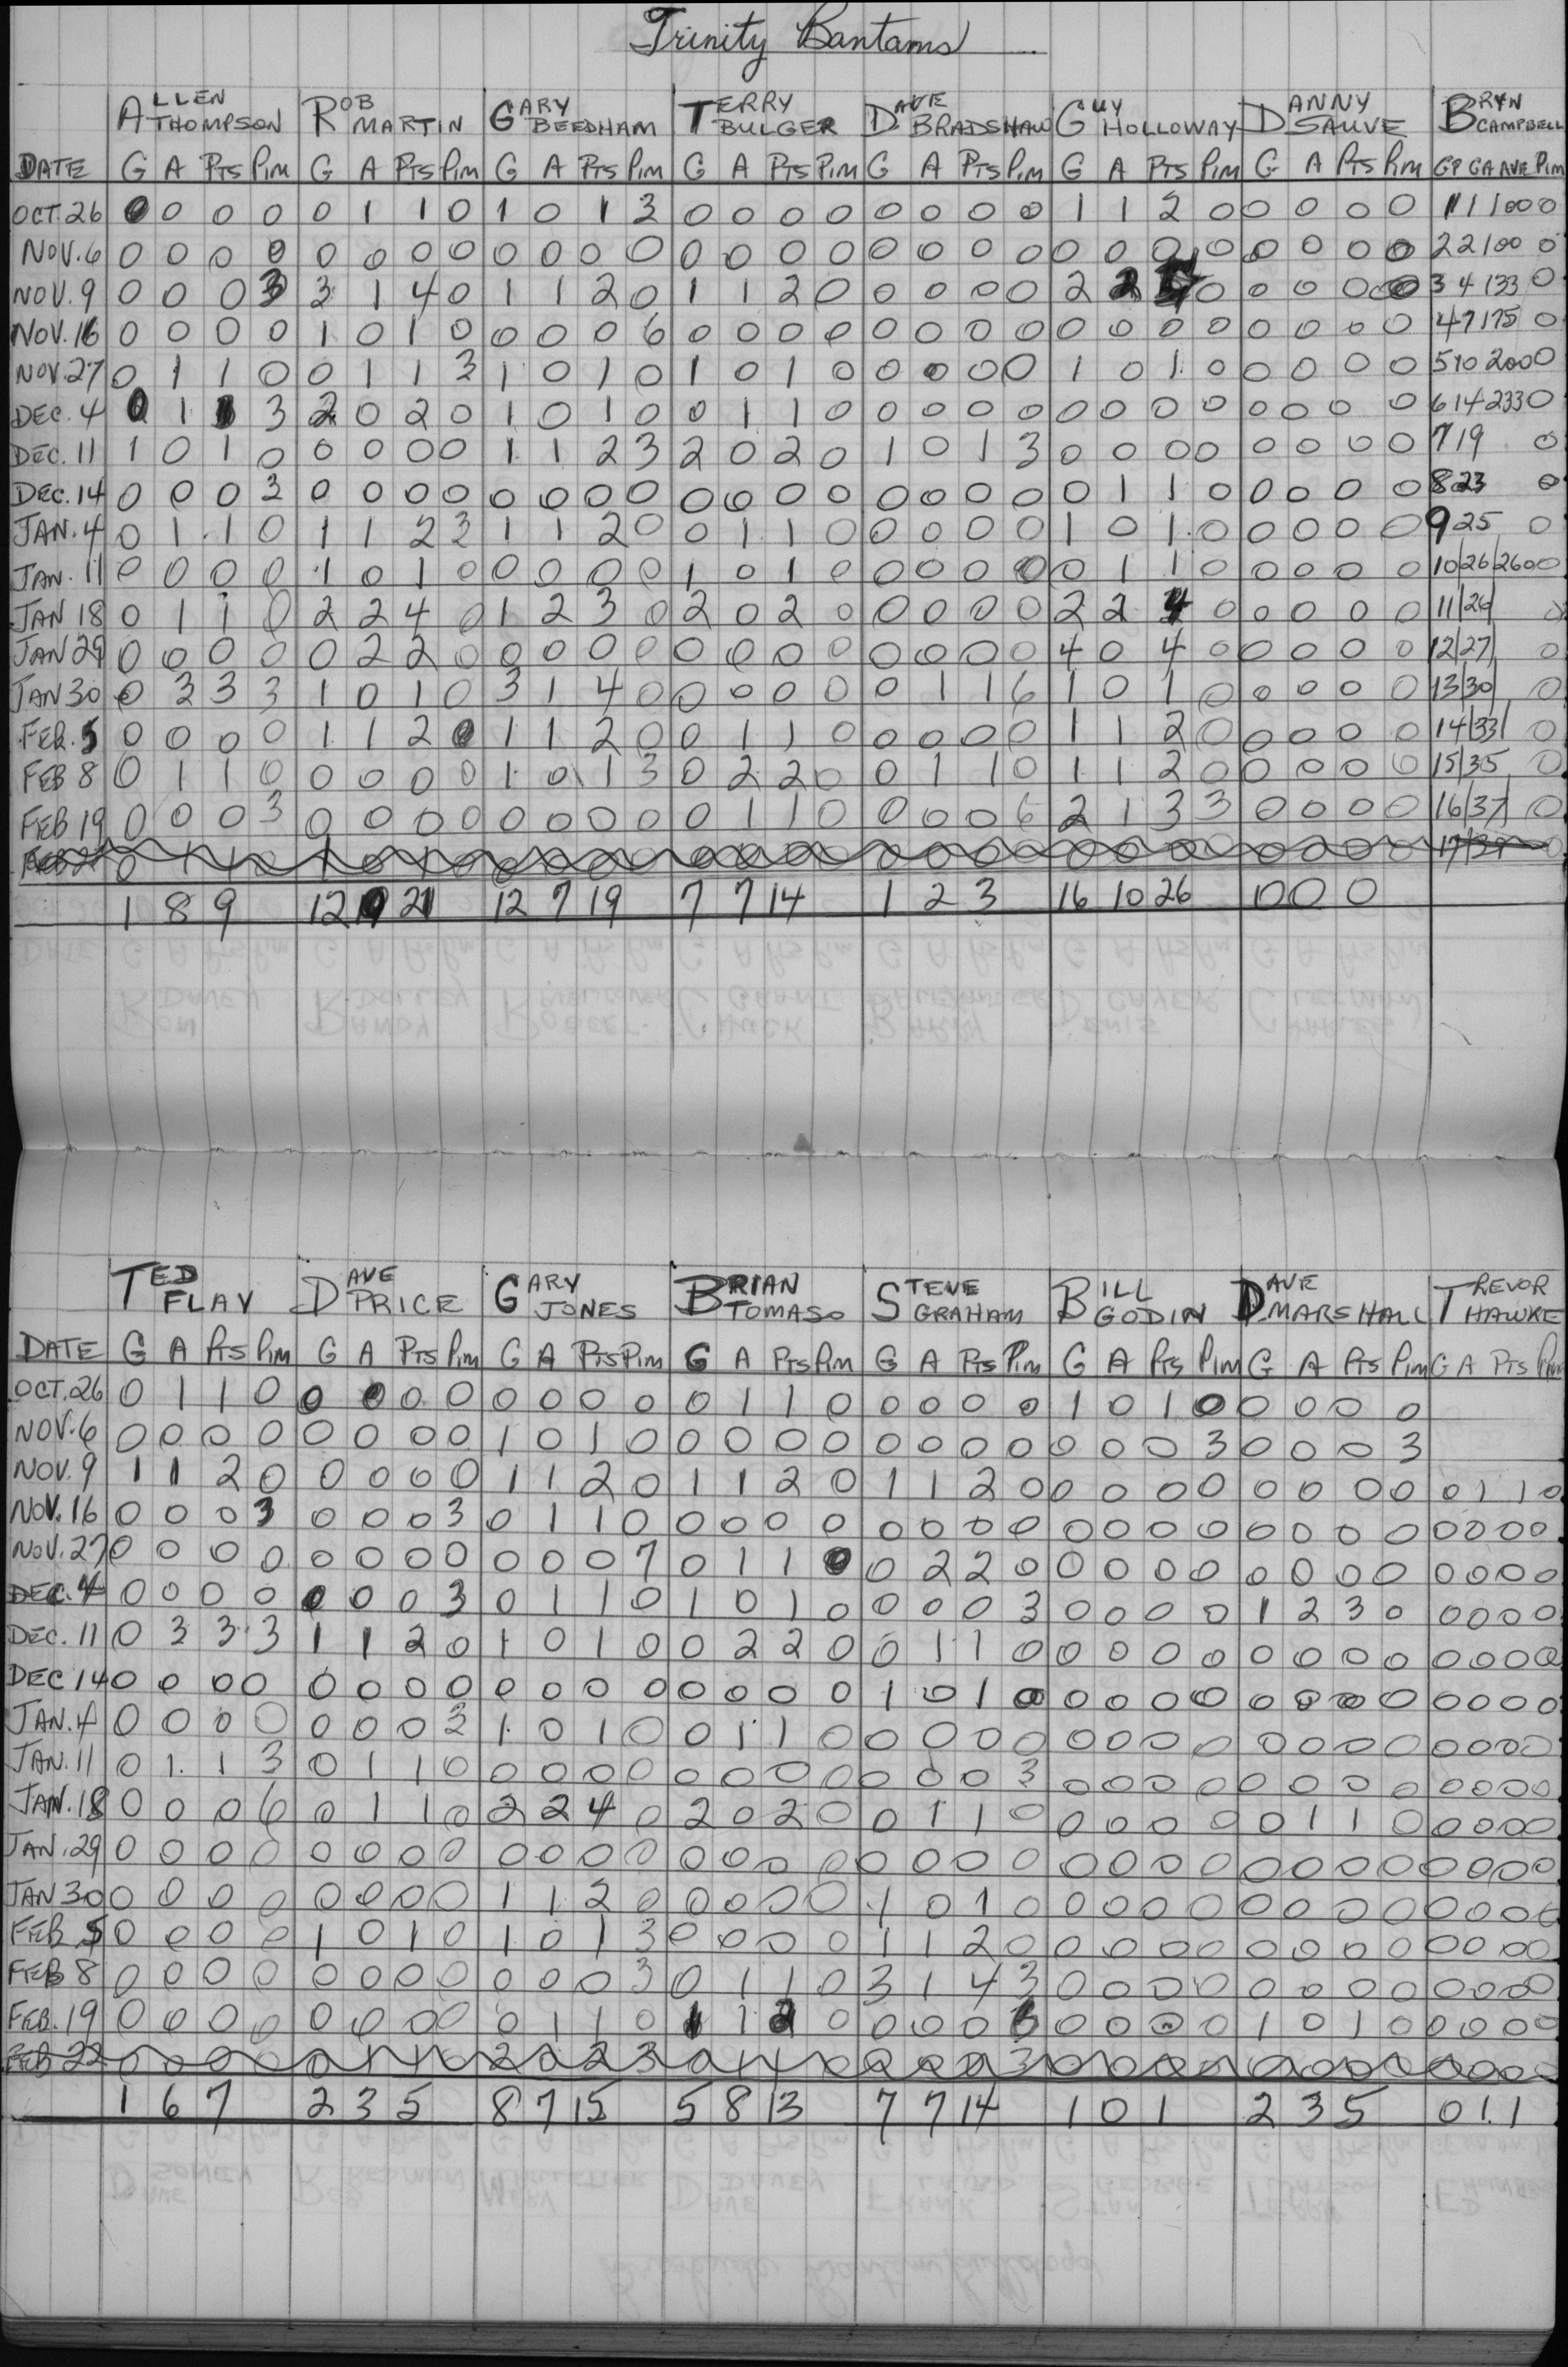 Trinity Bantams
ALLEN THOMPSON ROB MARTIN GARY BEEDHAM TERRY BULGER DAVE BRADSHAW GUY HOLLOWAY DANNY SAUVE BRYN CAMPBELL
DATE G A PTS PIM G A PTS PIM G A PTS PIM G A PTS PIM G A PTS PIM G A PTS PIM G A PTS PIM GP GA AVE PIM
OCT. 26 0 0 0 0 0 1 1 0 1 0 1 3 0 0 0 0 0 0 0 0 1 1 2 0 0 0 0 0 1 1 100 0
NOV. 6 0 0 0 0 0 0 0 0 0 0 0 0 0 0 0 0 0 0 0 0 0 0 0 0 0 0 0 0 2 2 100 0
NOV. 9 0 0 0 3 3 1 4 0 1 1 2 0 1 1 2 0 0 0 0 0 2 2 4 0 0 0 0 0 3 4 133 0
NOV. 16 0 0 0 0 1 0 1 0 0 0 0 6 0 0 0 0 0 0 0 0 0 0 0 0 0 0 0 0 4 7 175 0
NOV. 27 0 1 1 0 0 1 1 3 1 0 1 0 1 0 1 0 0 0 0 0 1 0 1 0 0 0 0 0 5 10 200 0
DEC. 4 0 1 1 3 2 0 2 0 1 0 1 0 0 1 1 0 0 0 0 0 0 0 0 0 0 0 0 0 6 14 233 0
DEC. 11 1 0 1 0 0 0 0 0 1 1 2 3 2 0 2 0 1 0 1 3 0 0 0 0 0 0 0 0 7 19 0
DEC. 14 0 0 0 3 0 0 0 0 0 0 0 0 0 0 0 0 0 0 0 0 0 1 1 0 0 0 0 0 8 23 0
JAN. 4 0 1 1 0 1 1 2 3 1 1 2 0 0 1 1 0 0 0 0 0 1 0 1 0 0 0 0 0 9 25 0
JAN. 11 0 0 0 0 1 0 1 0 0 0 0 0 1 0 1 0 0 0 0 0 0 1 1 0 0 0 0 0 10/26/260 0
JAN 18 0 1 1 0 2 2 4 0 1 2 3 0 2 0 2 0 0 0 0 0 2 2 4 0 0 0 0 0 11/26 0
JAN 29 0 0 0 0 0 2 2 0 0 0 0 0 0 0 0 0 0 0 0 0 4 0 4 0 0 0 0 0 12/27/ 0
JAN 30 0 3 3 3 1 0 1 0 3 1 4 0 0 0 0 0 0 1 1 6 1 0 1 0 0 0 0 0 13/30/ 0
FEB. 5 0 0 0 0 1 1 2 0 1 1 2 0 0 1 1 0 0 0 0 0 1 1 2 0 0 0 0 0 14/33/ 0
FEB 8 0 1 1 0 0 0 0 0 1 0 1 3 0 2 2 0 0 1 1 0 1 1 2 0 0 0 0 0 15/35 0
FEB 19 0 0 0 3 0 0 0 0 0 0 0 0 0 1 1 0 0 0 0 6 2 1 3 3 0 0 0 0 16/37/ 0
0 1 1 0 1 0 1 0 0 0 0 0 0 0 0 0 0 0 0 0 0 0 0 0 0 0 0 0
1 8 9 12 21 12 7 19 7 7 14 1 2 3 16 10 26 0 0 0
TED FLAY DAVE PRICE GARY JONES BRIAN TOMASO STEVE GRAHAM BILL GODIN DAVE MARSHALL TREVOR HAWKE
DATE G A PTS PIM G A PTS PIM G A PTS PIM G A PTS PIM G A PTS PIM G A PTS PIM G A PTS PIM G A PTS PIM
OCT. 26 0 1 1 0 0 0 0 0 0 0 0 0 0 1 1 0 0 0 0 0 1 0 1 0 0 0 0 0
NOV. 6 0 0 0 0 0 0 0 0 1 0 1 0 0 0 0 0 0 0 0 0 0 0 0 3 0 0 0 3
NOV. 9 1 1 2 0 0 0 0 0 1 1 2 0 1 1 2 0 1 1 2 0 0 0 0 0 0 0 0 0 0 1 1 0
NOV. 16 0 0 0 3 0 0 0 3 0 1 1 0 0 0 0 0 0 0 0 0 0 0 0 0 0 0 0 0 0 0 0 0
NOV. 27 0 0 0 0 0 0 0 0 0 0 0 7 0 1 1 0 0 2 2 0 0 0 0 0 0 0 0 0 0 0 0 0
DEC. 4 0 0 0 0 0 0 0 3 0 1 1 0 1 0 1 0 0 0 0 3 0 0 0 0 1 2 3 0 0 0 0 0
DEC. 11 0 3 3 3 1 1 2 0 1 0 1 0 0 2 2 0 0 1 1 0 0 0 0 0 0 0 0 0 0 0 0 0
DEC 14 0 0 0 0 0 0 0 0 0 0 0 0 0 0 0 0 1 0 1 0 0 0 0 0 0 0 0 0 0 0 0 0
JAN. 4 0 0 0 0 0 0 0 3 1 0 1 0 0 1 1 0 0 0 0 0 0 0 0 0 0 0 0 0 0 0 0 0
JAN. 11 0 1 1 3 0 1 1 0 0 0 0 0 0 0 0 0 0 0 0 3 0 0 0 0 0 0 0 0 0 0 0 0
JAN. 18 0 0 0 6 0 1 1 0 2 2 4 0 2 0 2 0 0 1 1 0 0 0 0 0 0 1 1 0 0 0 0 0
JAN. 29 0 0 0 0 0 0 0 0 0 0 0 0 0 0 0 0 0 0 0 0 0 0 0 0 0 0 0 0 0 0 0 0
JAN 30 0 0 0 0 0 0 0 0 1 1 2 0 0 0 0 0 1 0 1 0 0 0 0 0 0 0 0 0 0 0 0 0
FEB 5 0 0 0 0 1 0 1 0 1 0 1 3 0 0 0 0 1 1 2 0 0 0 0 0 0 0 0 0 0 0 0 0
FEB 8 0 0 0 0 0 0 0 0 0 0 0 3 0 1 1 0 3 1 4 3 0 0 0 0 0 0 0 0 0 0 0 0
FEB. 19 0 0 0 0 0 0 0 0 0 1 1 0 1 1 2 0 0 0 0 0 0 0 0 1 0 1 0 0 0 0 0
FEB 22 0 0 0 0 0 1 1 0 2 0 2 3 0 1 1 0 0 0 0 3 0 0 0 0 0 0 0 0 0 0 0 0
1 6 7 2 3 5 8 7 15 5 8 13 7 7 14 1 0 1 2 3 5 0 1 1